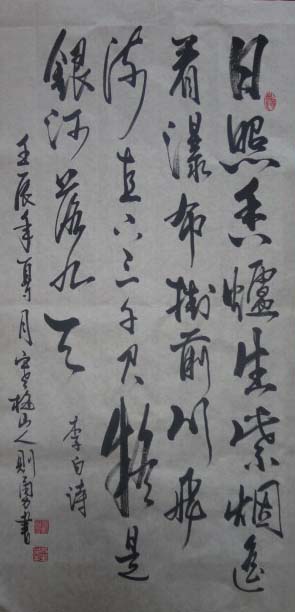 日照香爐生紫烟遙
看瀑布掛前川飛
流直下三千尺疑是
銀河落九天
李白詩
壬辰年夏月山人則勇書